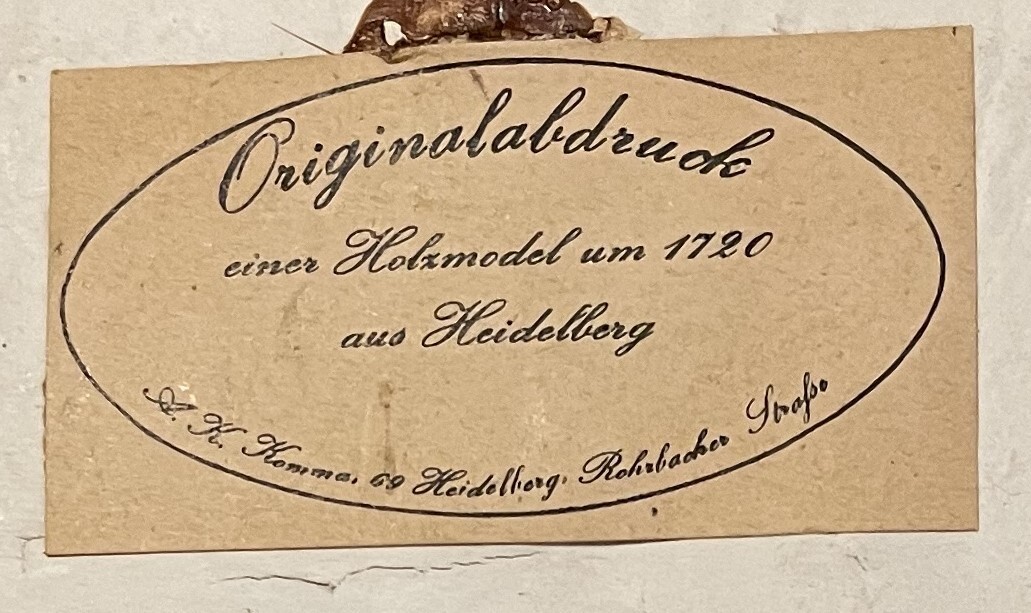 Originalabdruck
einer Holzmodel um 1720
aus Heidelberg
A. K. Komma, 69 Heidelberg, Rohrbacher Straße